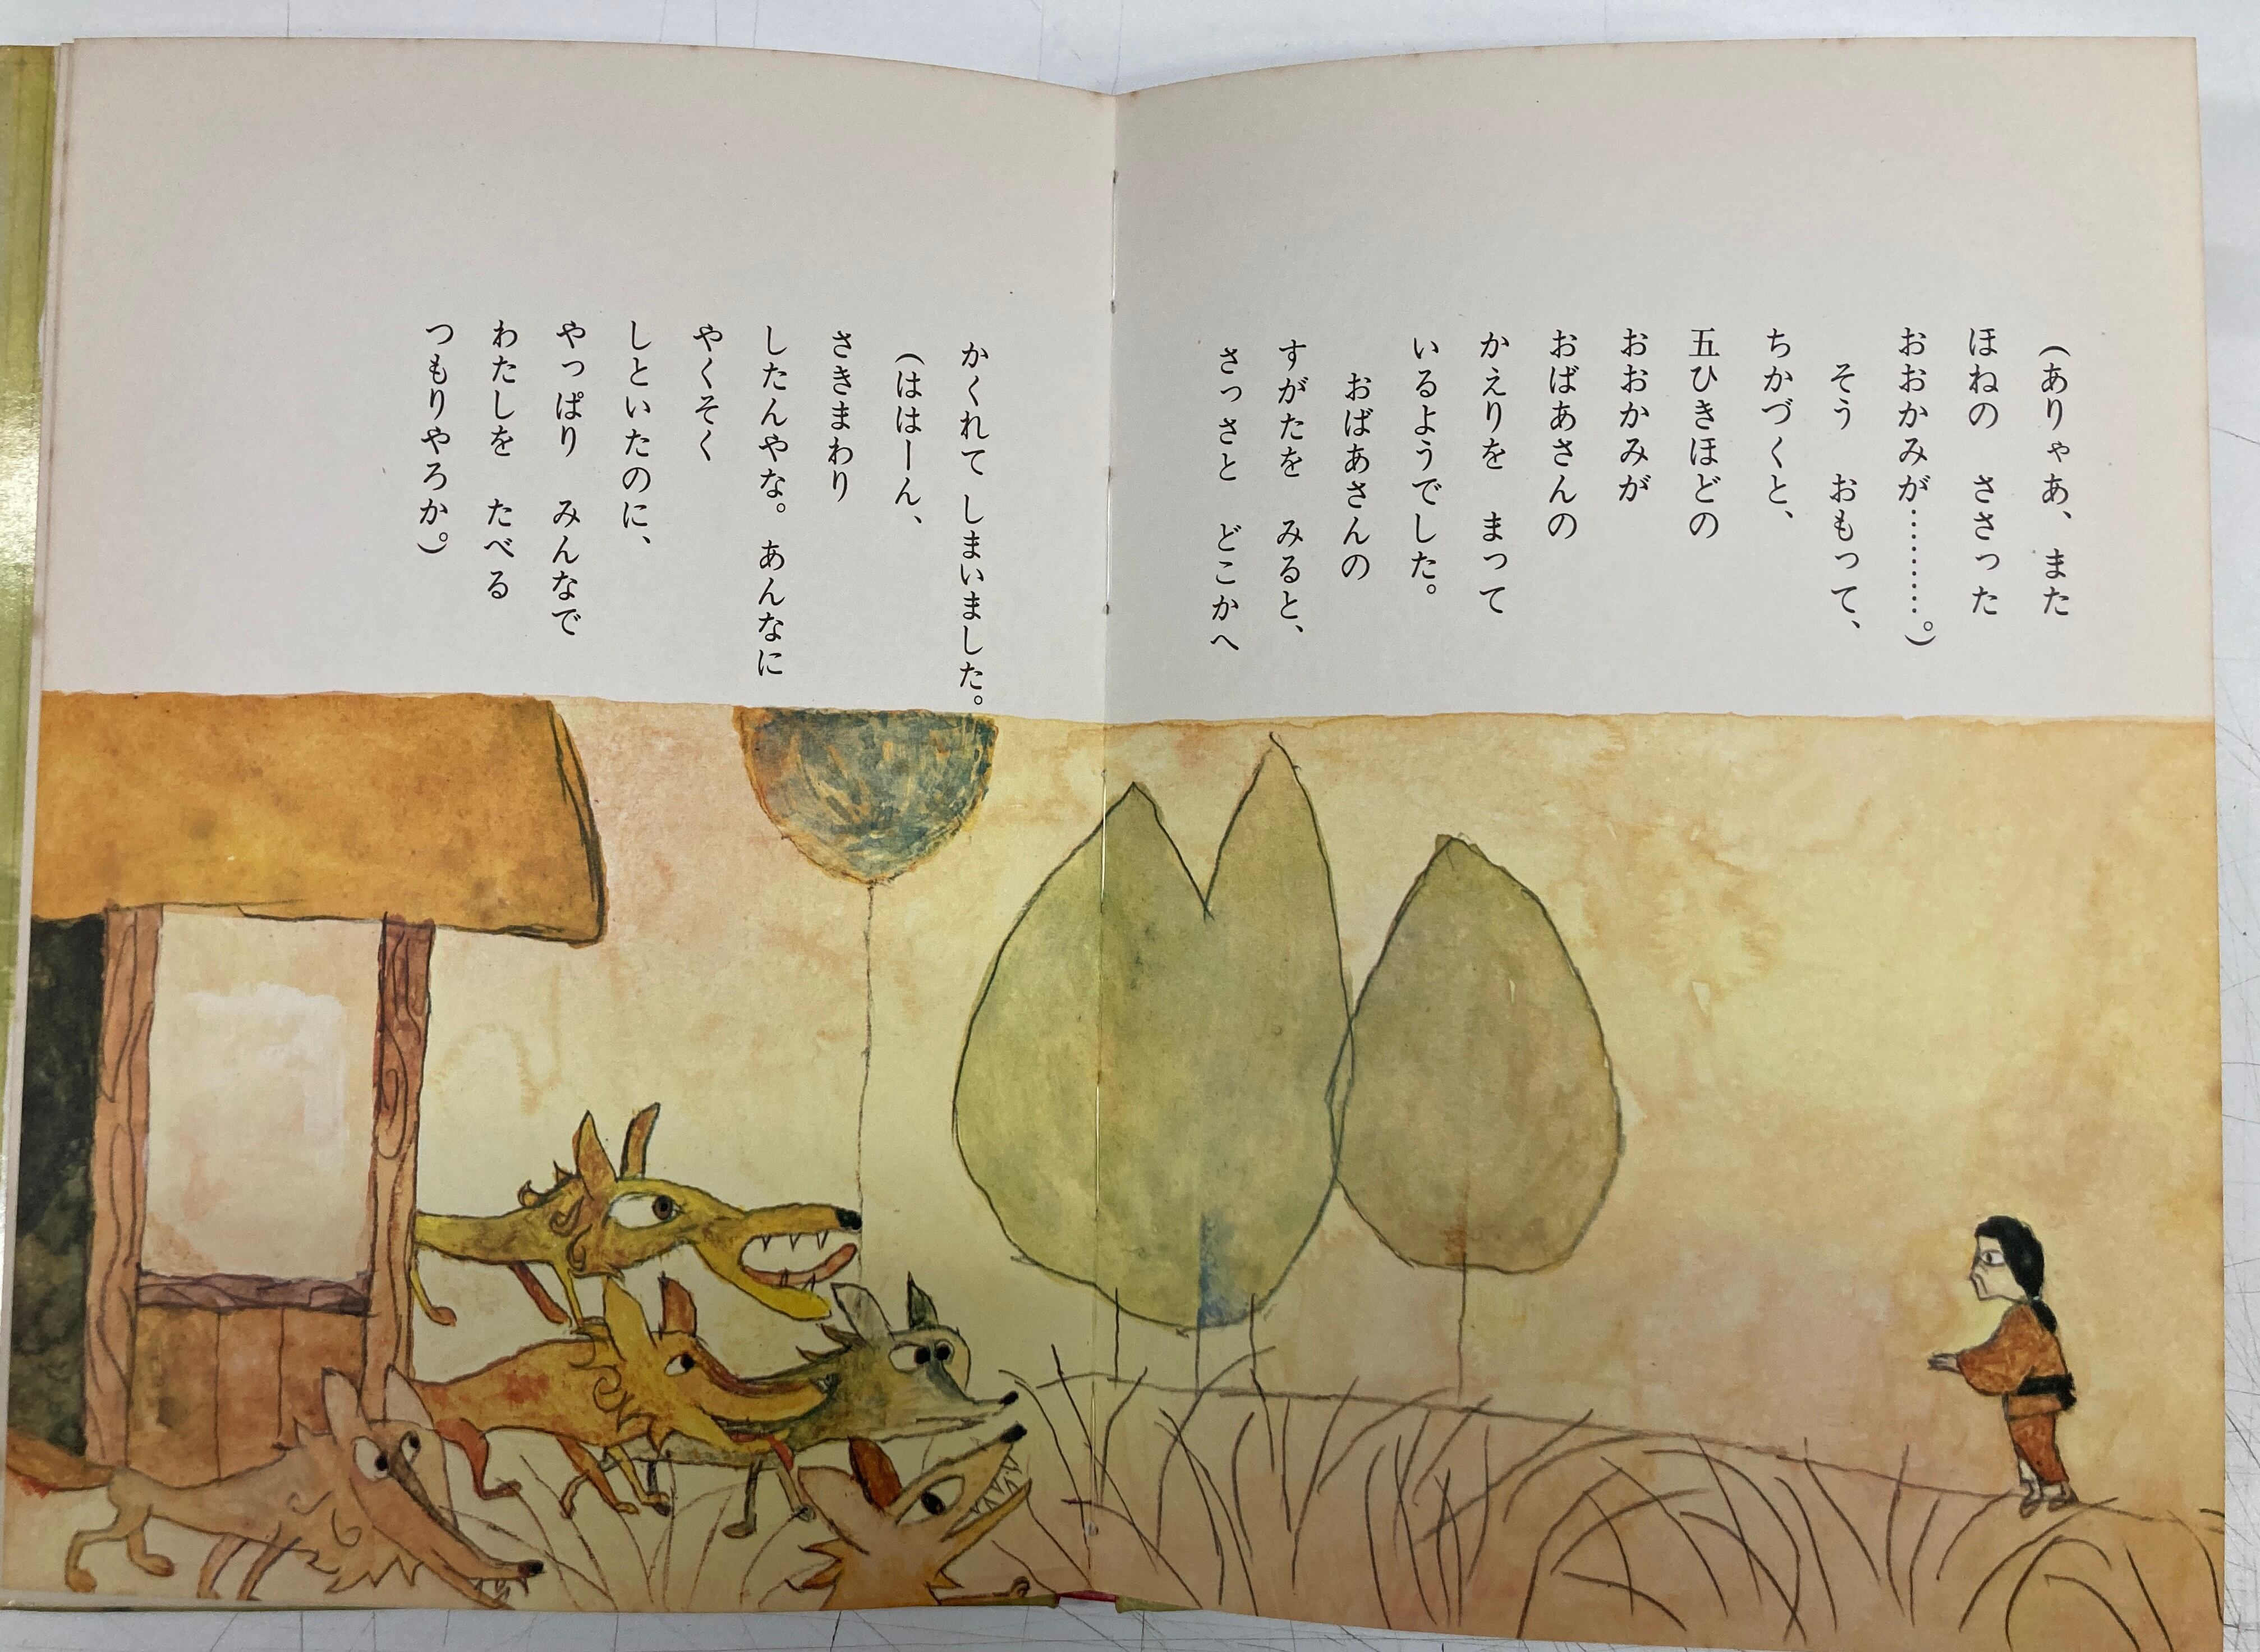 (ありゃあ、また
ほねの　ささった
おおかみが…………。)
そう　おもって、
ちかづくと、
五ひきほどの
おおかみが
おばあさんの
かえりを　まって
いるようでした。
おばあさんの
すがたを　みると、
さっさと　どこかへ
かくれて　しまいました。
(ははーん、
さきまわり
したんやな。あんなに
やくそく
しといたのに、
やっぱり　みんなで
わたしを　たべる
つもりやろか。)